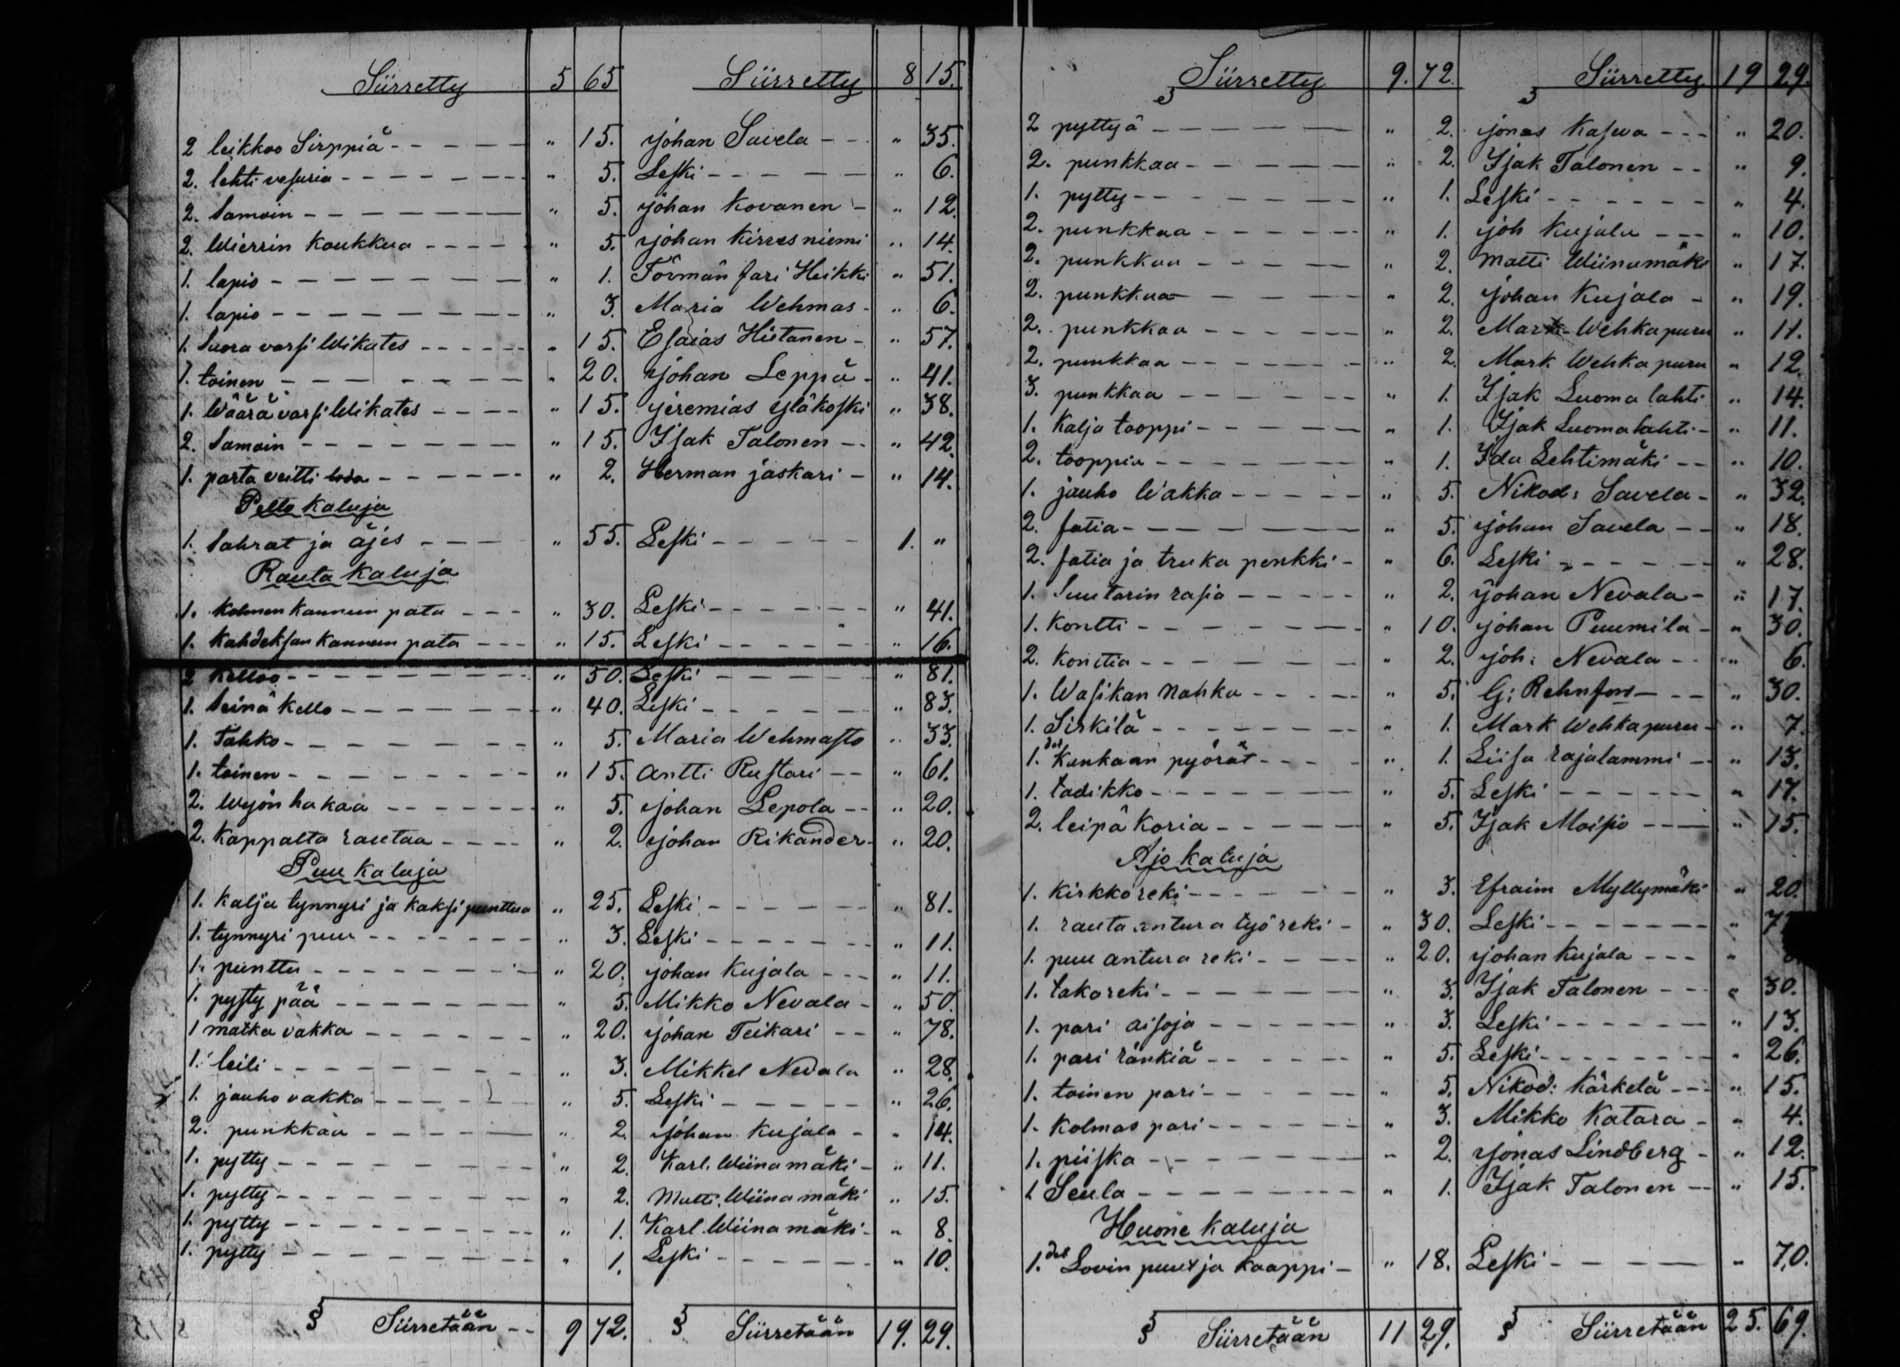 Siirretty 5 65 Siirretty 8 15.
2 leikkoo Sirppiä - - - - „ 15. Johan Savela - - „ 35.
2. lehti vesuria - - - - „ 5. Leski - - - - „ 6.
2. Samoin - - - - „ 5. Johan Kovanen - „ 12.
2. Wierrin koukkua - - - - „ 5. Johan Kirresniemi „ 14.
1. lapio - - - - „ 1. Törmän fari Heikki „ 51.
1. lapio - - - - „ 3. Maria Wehmas - „ 6.
1. Suora varsi Wikates - - - - „ 15. Esaias Hietanen - „ 57.
1. toinen - - - - „ 20. Johan Leppä - „ 41.
1. Wäärä varsi Wikates - - - - „ 15. Jeremias Yläkoski „ 38.
2. Samoin - - - - „ 15. Isak Talonen - - „ 42.
1. parta veitti - - - - „ 2. Herman Jaskari - „ 14.
Pelto kaluja
1. Sahrat ja äjes - - - - „ 55. Leski - - - - 1. „
Rauta kaluja
1. kolmen kannun pata - - - „ 30. Leski - - - - „ 41.
1. kahdeksan kannun pata - - - „ 15. Leski - - - - „ 16.
2 kelloo - - - - „ 50. Leski - - - - „ 81.
1. Seinä kello - - - - „ 40. Leski - - - - „ 83.
1. Tahko - - - - „ 5. Maria Wehmasto „ 33.
1. toinen - - - - „ 15. Antti Rustari - - „ 61.
2. Wyön hakaa - - - - „ 5. Johan Lepola - - „ 20.
2. kappalta rautaa - - - - „ 2. Johan Rikander - „ 20.
Puu kaluja
1. kalja tynnyri ja kaksi punttua „ 25. Leski - - - - „ 81.
1. tynnyri puu - - - - „ 3. Leski - - - - „ 11.
1. punttu - - - - „ 20. Johan Kujala - - - „ 11.
1. pysty pää - - - - „ 5. Mikko Nevala - „ 50.
1 matka vakka - - - - „ 20. Johan Teikari - - „ 78.
1. leili - - - - „ 3. Mikkel Nevala „ 28.
1. jauho vakka - - - - „ 5. Leski - - - - „ 26.
2. punkkaa - - - - „ 2. Johan Kujala - „ 14.
1. pytty - - - - „ 2. Karl. Wiinamäki - „ 11.
1. pytty - - - - „ 2. Matti Wiinamäki „ 15.
1. pytty - - - - „ 1. Karl. Wiinamäki - „ 8.
1. pytty - - - - „ 1. Leski - - - - „ 10.
§ Siirretään - - 9 72. § Siirretään 19. 29.
Siirretty 9. 72. Siirretty 19 29.
2 pyttyä - - - - „ 2. Jonas Kaswa - - - „ 20.
2. punkkaa - - - - „ 2. Isak Talonen - - „ 9.
1. pytty - - - - „ 1. Leski - - - - „ 4.
2. punkkaa - - - - „ 1. Joh Kujala - - - „ 10.
2. punkkaa - - - - „ 2. Matti Wiinamäki „ 17.
2. punkkaa - - - - „ 2. Johan Kujala - „ 19.
2. punkkaa - - - - „ 2. Mark Wehkapuru „ 11.
2. punkkaa - - - - „ 2. Mark Wehkapuru „ 12.
3. punkkaa - - - - „ 1. Isak Luomalahti „ 14.
1. Kalja tooppi - - - - „ 1. Isak Luomalahti - „ 11.
2. tooppia - - - - „ 1. Ida Lehtimäki - - „ 10.
1. jauho Wakka - - - - „ 5. Nikod: Savela - „ 32.
2. fatia - - - - „ 5. Johan Savela - - „ 18.
2. fatia ja truka penkki - „ 6. Leski - - - - „ 28.
1. Suutarin rasia - - - - „ 2. Johan Nevala - „ 17.
1. Kontti - - - - „ 10. Johan Puumila - „ 30.
2. Konttia - - - - „ 2. Joh: Nevala - - „ 6.
1. Wasikan Nahka - - - - „ 5. G: Rehnfors - - „ 30.
1. Sirkilä - - - - „ 1. Mark Wehkapuru - „ 7.
1. del Kankaan pyörät - - - „ 1. Liisa rajalammi - „ 13.
1. tadikko - - - - „ 5. Leski - - - - „ 17.
2. leipä koria - - - - „ 5. Isak Moisio - - „ 15.
Ajo kaluja
1. kirkkoreki - - - - „ 3. Efraim Myllymäki „ 20.
1. rauta antura työreki - „ 30. Leski - - - - „
1. puu antura reki - - - „ 20. Johan Kujala - - - „
1. takoreki - - - - „ 3. Isak Talonen - - „ 30.
1. pari aisoja - - - - „ 3. Leski - - - - „ 13.
1. pari ränkiä - - - - „ 5. Leski - - - - „ 26.
1. toinen pari - - - - „ 5. Nikod: Kärkelä - - „ 15.
1. Kolmas pari - - - - „ 3. Mikko Katara - „ 4.
1. piiska - - - - „ 2. Jonas Lindberg - „ 12.
1 Seula - - - - „ 1. Isak Talonen - „ 15.
Huone kaluja
1. del Lovin puut ja kaappi - „ 18. Leski - - - - „ 70.
§ Siirretään 11 29. § Siirretään 25. 69.